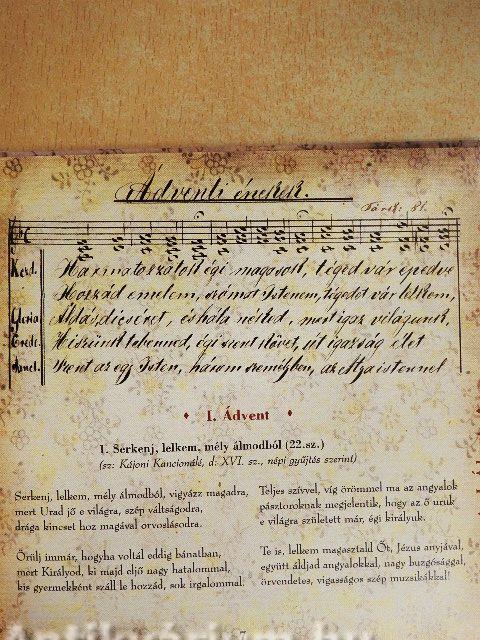 Adventi énekek.
Tárk: 81.
Kezd. Harmatozzatok égi magasok, téged vár epedve
Hozzád emelem, számat Istenem, tégedet vár lelkem,
Gloria Áldás, dicséret, és hála néked, mert igaz világunk,
Crede. Hiszünk tebenned, égi szent ige, út igazság élet
Sanct. Szent az egy Isten, három személyben, az Atya istennel
♦ I. Ádvent ♦
1. Serkenj, lelkem, mély álmodból (22.sz.)
(sz: Kájoni Kancionálé, d: XVI. sz., népi gyűjtés szerint)
Serkenj, lelkem, mély álmodból, vigyázz magadra,
mert Urad jő e világra, szép váltságodra,
drága kincset hoz magával orvoslásodra.
Örülj immár, hogyha voltál eddig bánatban,
mert Királyod, ki majd eljő nagy hatalommal,
kis gyermekként száll le hozzád, sok irgalommal.
Teljes szívvel, víg örömmel ma az angyalok
pásztoroknak megjelentik, hogy az ő uruk
e világra született már, égi királyuk.
Te is, lelkem magasztald Őt, Jézus anyjával,
együtt áldjad angyalokkal, nagy buzgósággal,
örvendetes, vigasságos szép muzsikákkal!
7